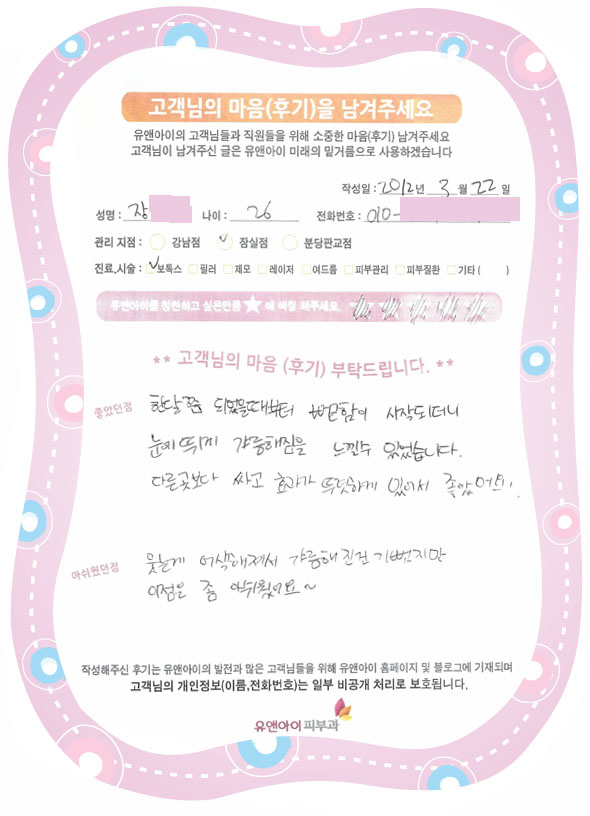 고객님의 마음(후기)을 남겨주세요
유앤아이의 고객님들과 직원들을 위해 소중한 마음(후기) 남겨주세요
고객님이 남겨주신 글은 유앤아이 미래의 밑거름으로 사용하겠습니다
작성일 : 2012년 3월 22일
성명 : 장 나이 : 26 전화번호 : 010-
관리 지점 : 강남점 잠실점 분당판교점
진료,시술 : 보톡스 필러 제모 레이저 여드름 피부관리 피부질환 기타 ( )
유앤아이를 칭찬하고 싶은만큼 ★ 에 색칠 해주세요
** 고객님의 마음 (후기) 부탁드립니다. **
좋았던점 한달쯤 되었을때부터 변함이 시작되더니
눈에 띄게 갸름해짐을 느낄수 있었습니다.
다른곳보다 싸고 효과가 뚜렷하게 있어서 좋았어요.
아쉬웠던점 웃는게 어색해져서 갸름해진건 기뻤지만
이점은 좀 아쉬웠어요~
작성해주신 후기는 유앤아이의 발전과 많은 고객님들을 위해 유앤아이 홈페이지 및 블로그에 기재되며
고객님의 개인정보(이름,전화번호)는 일부 비공개 처리로 보호됩니다.
유앤아이피부과